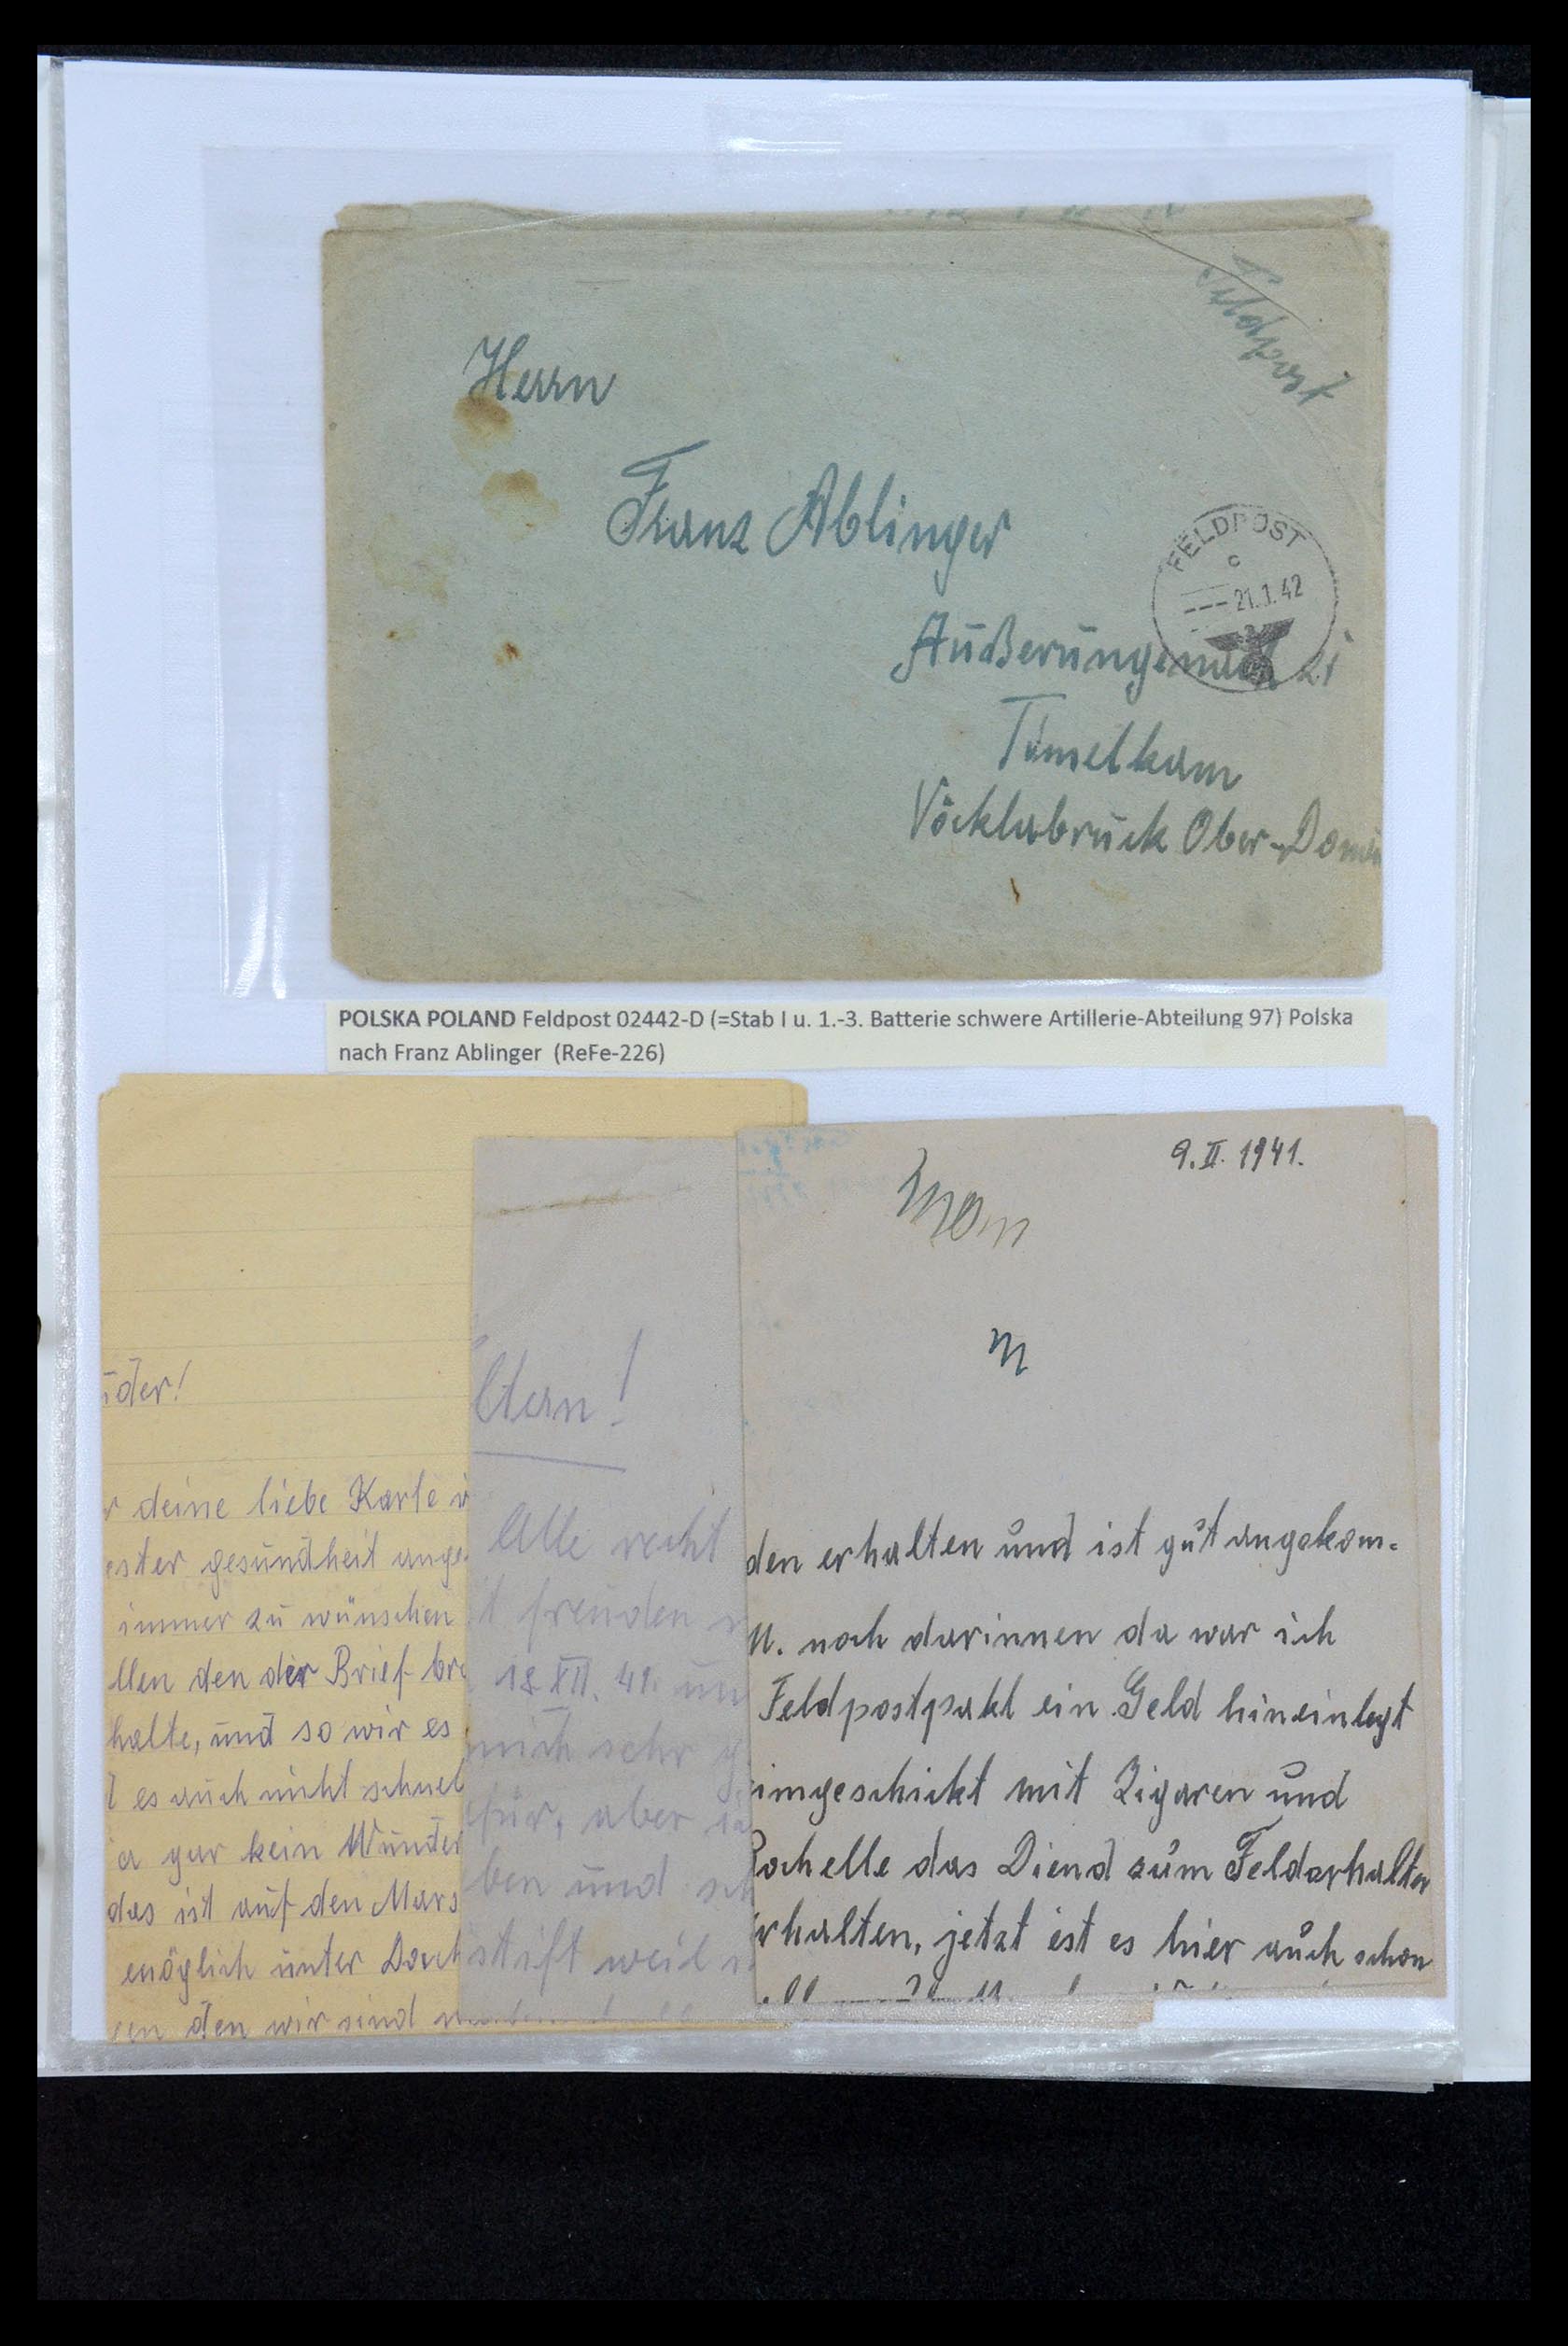 Feldpost
Herrn
Franz Ablinger
FELDPOST
c
21.1.42
21
Timelkam
Vöcklabruck Ober-Donau
POLSKA POLAND Feldpost 02442-D (=Stab I u. 1.-3. Batterie schwere Artillerie-Abteilung 97) Polska
nach Franz Ablinger (ReFe-226)
üder!
r deine liebe Karte
ester gesundheit ange
immer zu wünschen
llen den der Brief
halte, und so wir es
t es auch nicht schnel
a gar kein Wunder
das ist auf den Mars
enöglich unter Dach
den wir sind
ltern!
Alle recht
t freuden
18.XII. 41. un
mich sehr g
für, aber
ben und sch
stift weil
9.II.1941.
Mom
M
den erhalten und ist gut angekom-
u. noch darinnen da war ich
Feldpostpakt ein Geld hineinlegt
imgeschickt mit Zigaren und
Rochelle das Diend zum Felderhalten
rhalten, jetzt ist es hier auch schon